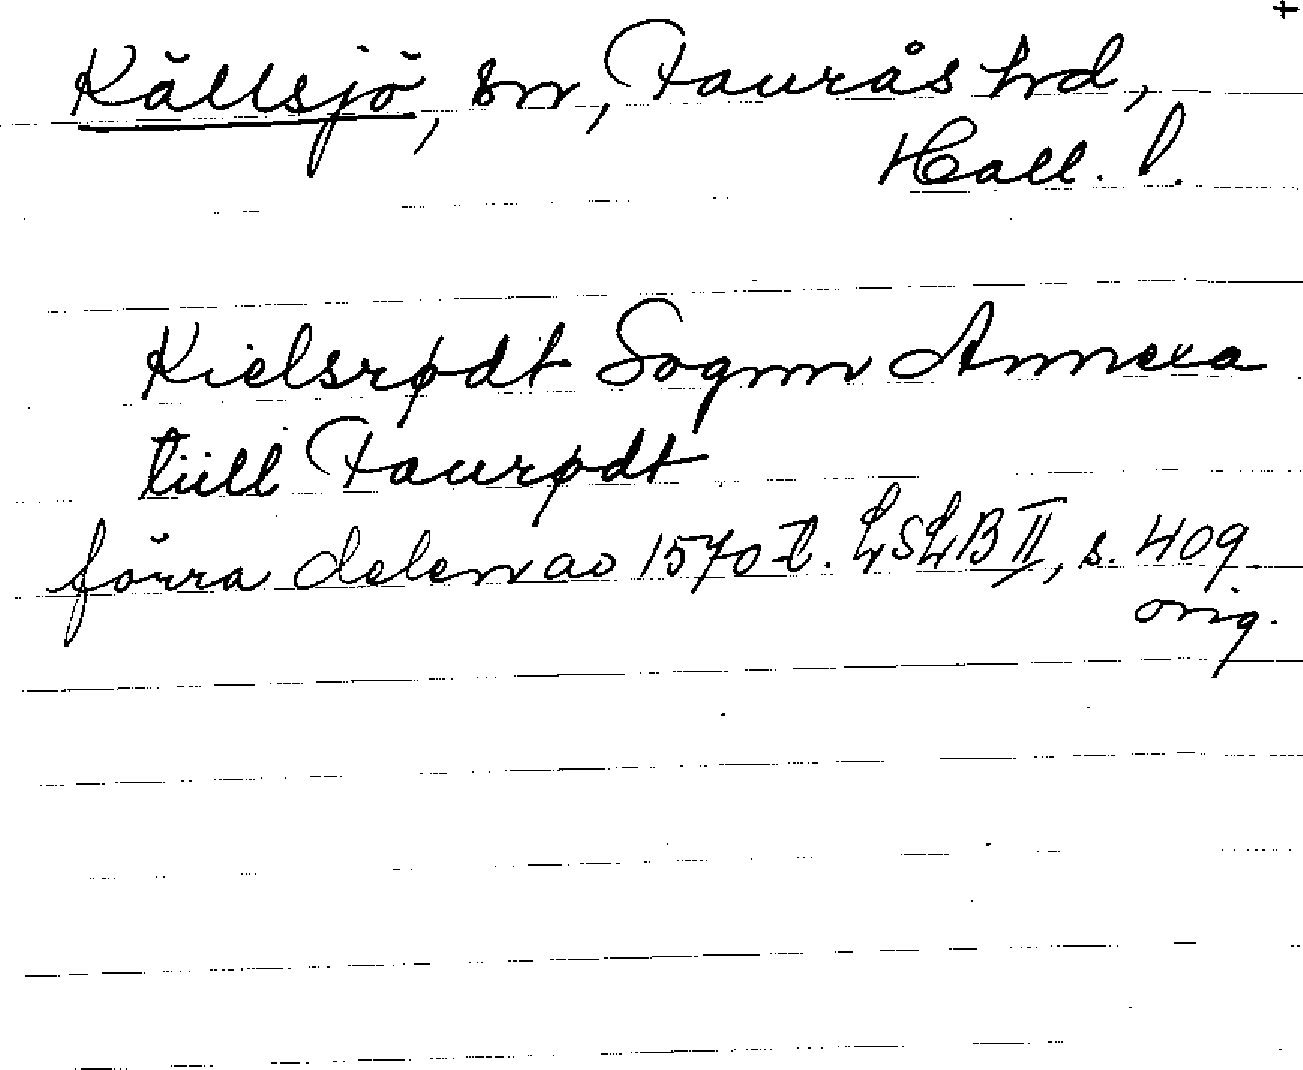 +
Källsjö, sn, Faurås hd,
Hall. l.
Kielsrødt Sognn Annexa
tiill Faurødt
förra delen av 1570-t. LSLB II, s. 409
orig.